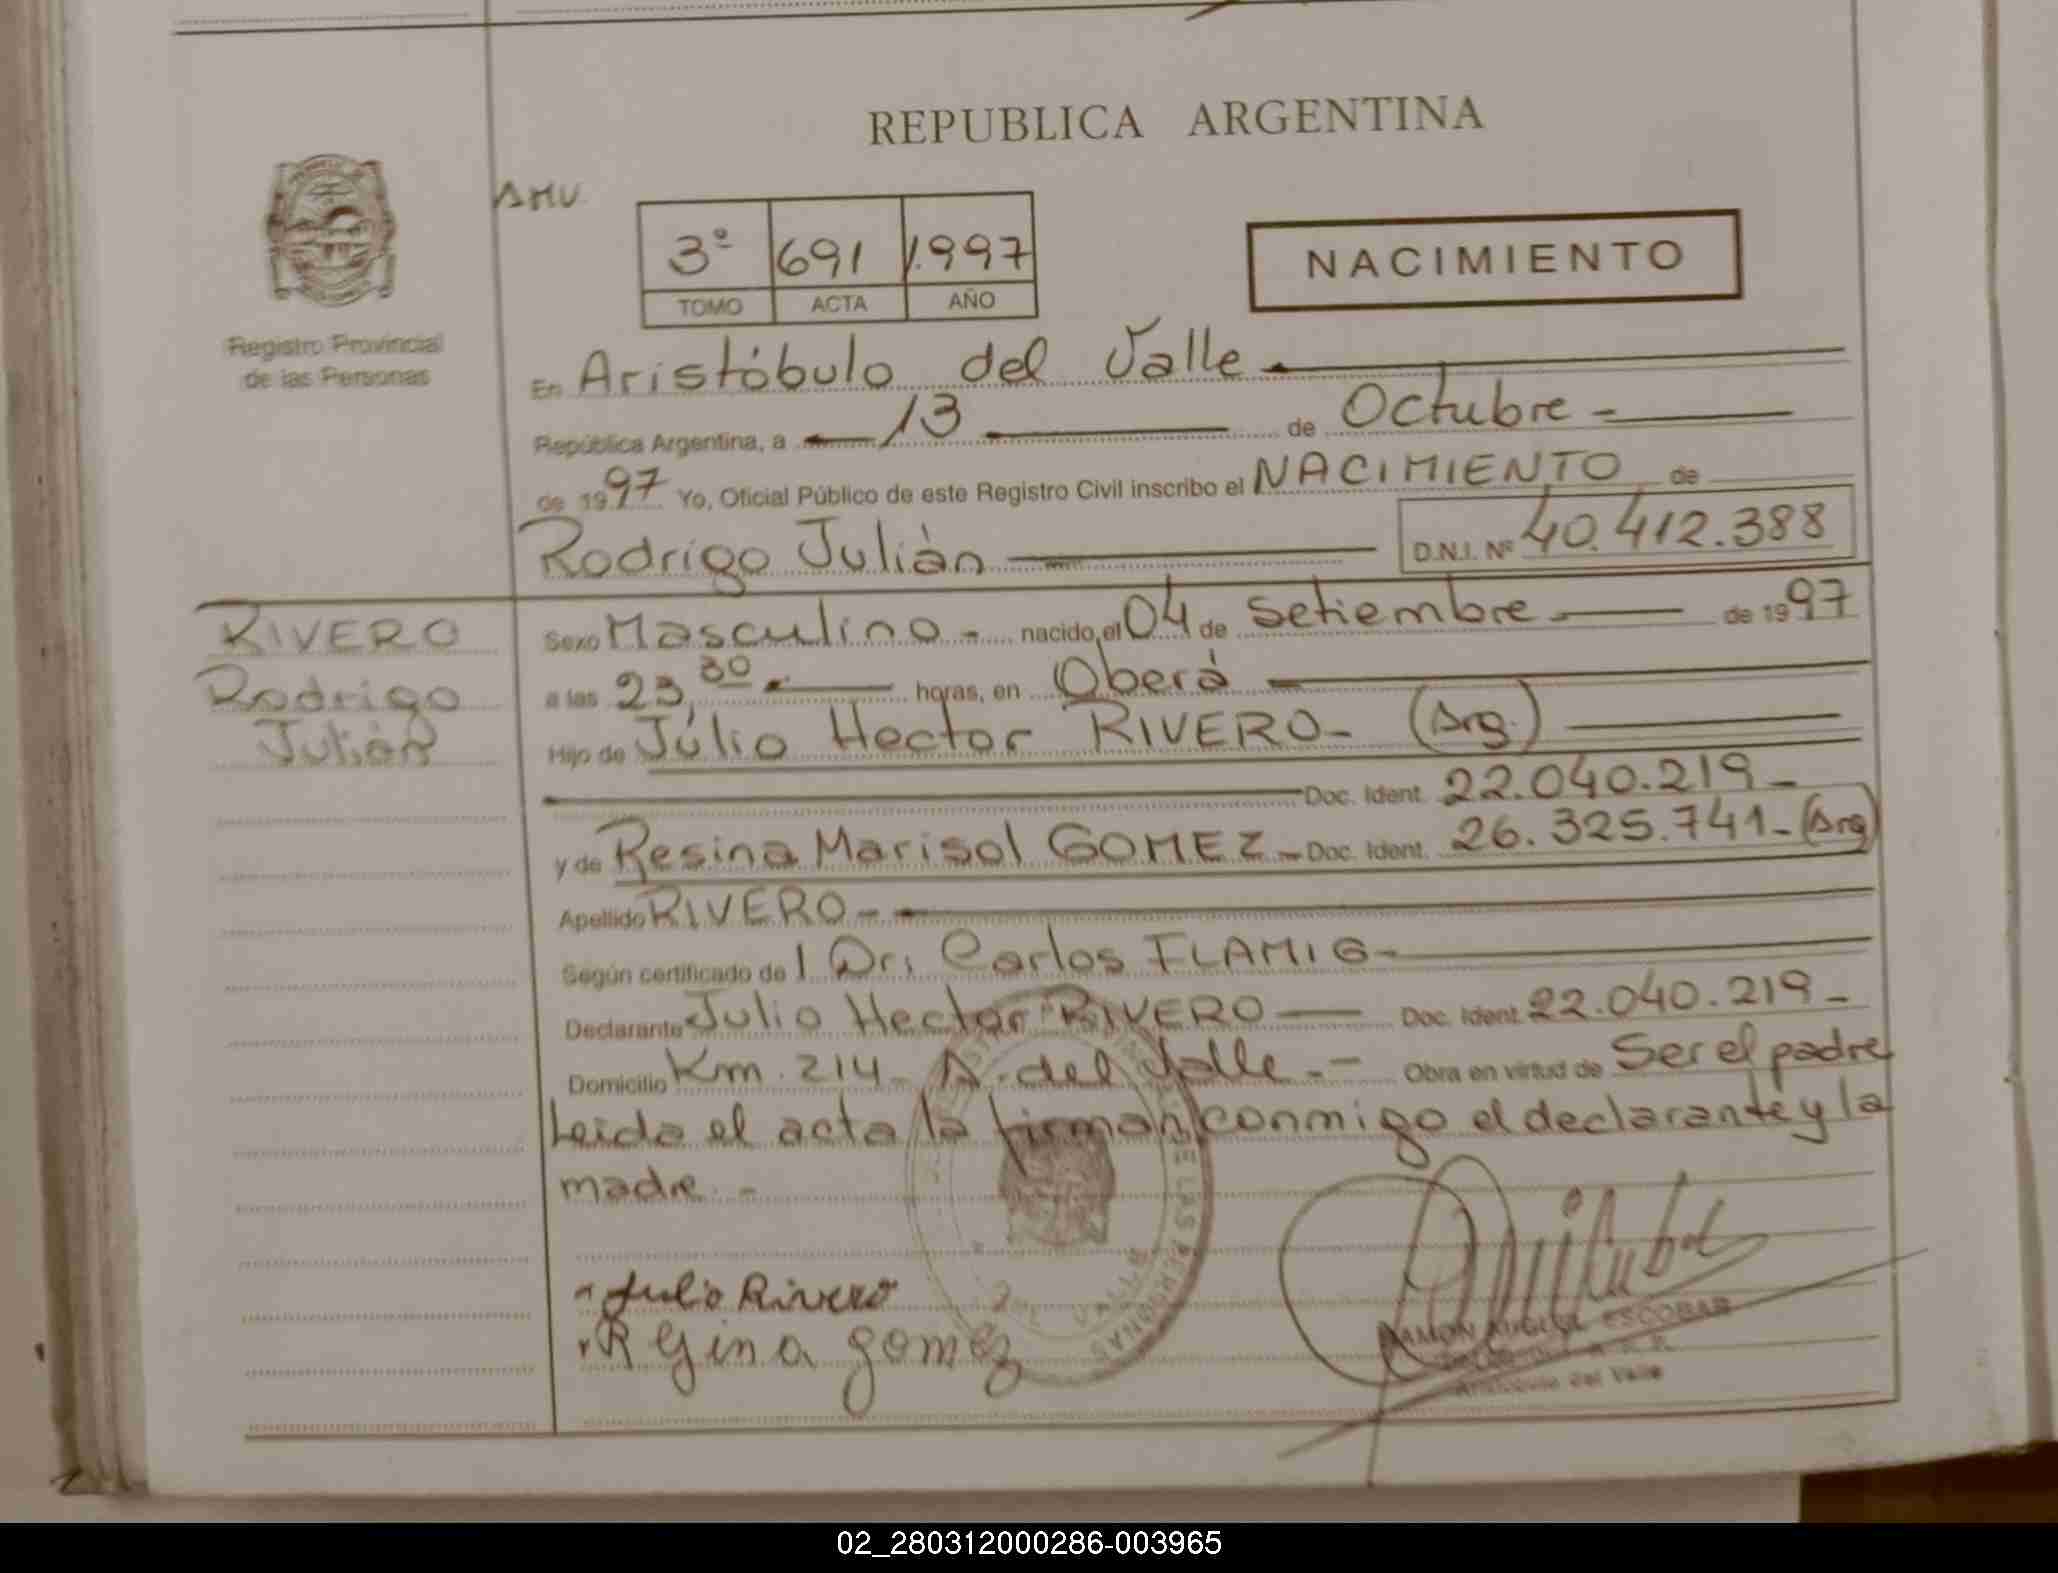 REPUBLICA ARGENTINA
Registro Provincial
de las Personas
AMV.
3º 691 1.997
TOMO ACTA AÑO
NACIMIENTO
En Aristóbulo del Valle
República Argentina, a 13 de Octubre -
de 1997 Yo, Oficial Público de este Registro Civil inscribo el NACIMIENTO de
Rodrigo Julián D.N.I. Nº 40.412.388
RIVERO
Rodrigo
Julián
Sexo Masculino - nacido el 04 de Setiembre - de 1997
a las 23,30 - horas, en Oberá
Hijo de Júlio Hector RIVERO - (Arg.)
Doc. Ident. 22.040.219 -
y de Resina Marisol GOMEZ - Doc. Ident. 26.325.741 - (Arg)
Apellido RIVERO -
Según certificado del Dr. Carlos FLAMIG -
Declarante Julio Hector RIVERO - Doc. Ident. 22.040.219 -
Domicilio Km. 214 - A. del Valle. - Obra en virtud de Ser el padre
Leida el acta la firman conmigo el declarante y la
madre. -
Julio Rivero
Regina gomez
ESCOBAR
Aristóbulo del Valle
02_280312000286-003965